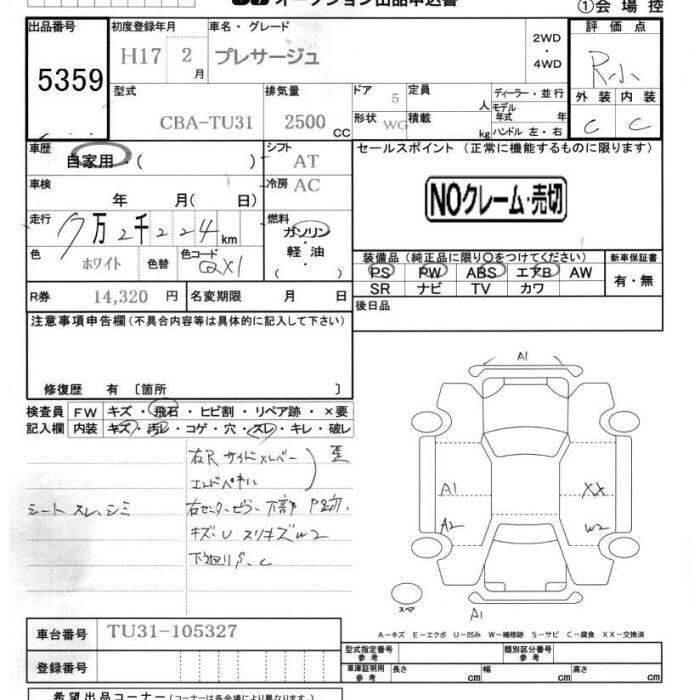 オークション出品申込書
①会場控
出品番号 初度登録年月 車名・グレード 評価点
5359 H17 2月 プレサージュ 2WD・4WD R小
型式 排気量 ドア 定員 ディーラー・並行 外装 内装
CBA-TU31 2500CC 5 人 モデル年式 年 C C
形状 WG 積載 kg ハンドル 左・右
車歴 シフト セールスポイント (正常に機能するものに限ります)
自家用・( ) AT
車検 冷房 AC
年 月( 日)
NOクレーム・売切
走行 燃料
7万2千224km ガソリン・軽油
色 ホワイト 色替 色コード QX1
装備品 (純正品に限り○をつけてください) 新車保証書
PS PW ABS エアB AW 有・無
SR ナビ TV カワ
R券 14,320円 名変期限 月 日
後日品
注意事項申告欄(不具合内容等は具体的に記入して下さい)
修復歴 有〔箇所 〕
検査員 FW キズ・飛石・ヒビ割・リペア跡・×要
記入欄 内装 キズ・汚レ・コゲ・穴・スレ・キレ・破レ
右R サイドメンバー
エンドパネル 歪
シート スレ、シミ
右センターピラー 下部
キズ・U スリキズW2
下廻りS、C
A1
A1 XX
A2 W2
スペア
A1
A-キズ E-エクボ U-凹み W-補修跡 S-サビ C-腐食 XX-交換済
車台番号 TU31-105327
型式指定番号 参考 類別区分番号 参考
登録番号
車庫証明用 参考 長さ cm 幅 cm 高さ cm
希望出品コーナー(コーナーは各会場により異なります。)